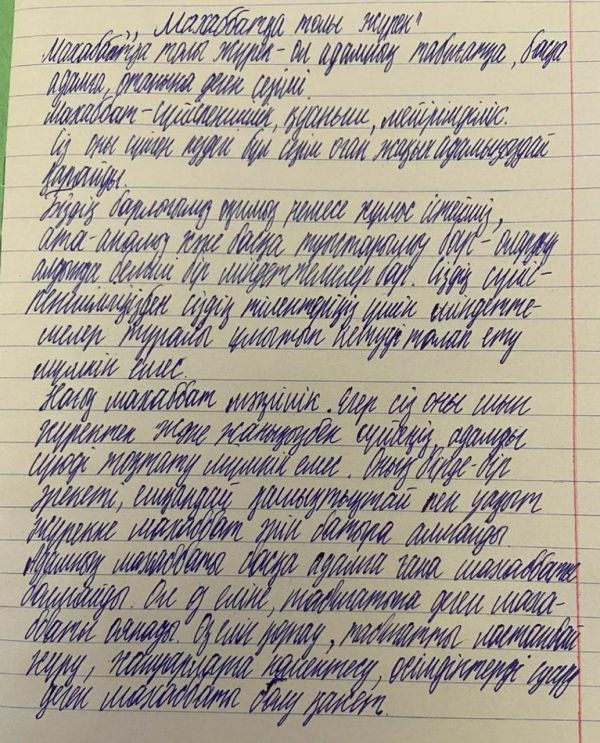 „Махаббатқа толы жүрек"
Махаббатқа толы жүрек - ол адамның табиғатқа, басқа
адамға, отанына деген сезімі.
Махаббат - сүйіспеншілік, қуаныш, мейірімділік.
Сіз оны сүйген кезде бұл сезім оған жақын адамыңыздай
қарайды.
Біздің барлығымыз оқимыз немесе жұмыс істейміз,
ата-анамыз және басқа туыстарымыз бар - олардың
алдында белгілі бір міндеттемелер бар. Сіздің сүйіс-
пеншілігіңізбен сіздің тілектеріңіз үшін міндетте-
мелер туралы ұмытып кетуді талап ету
мүмкін емес.
Нағыз махаббат мәңгілік. Егер сіз оны шын
жүректен және жаныңызбен сүйсеңіз, адамды
сүюді тоқтату мүмкін емес. Оның бірде-бір
әрекеті, ешқандай қашықтықтай пен уақыт
жүрекке махаббат әнін батыра алмайды.
Адамның махаббаты басқа адамға ғана махаббаты
болмайды. Ол өз еліне, табиғатына деген маха-
ббаты оянады. Өз елін қорғау, табиғатты ластамай
жүру, жануарларға көмектесу, өсімдіктерді суару
деген махаббаты болу қажет.